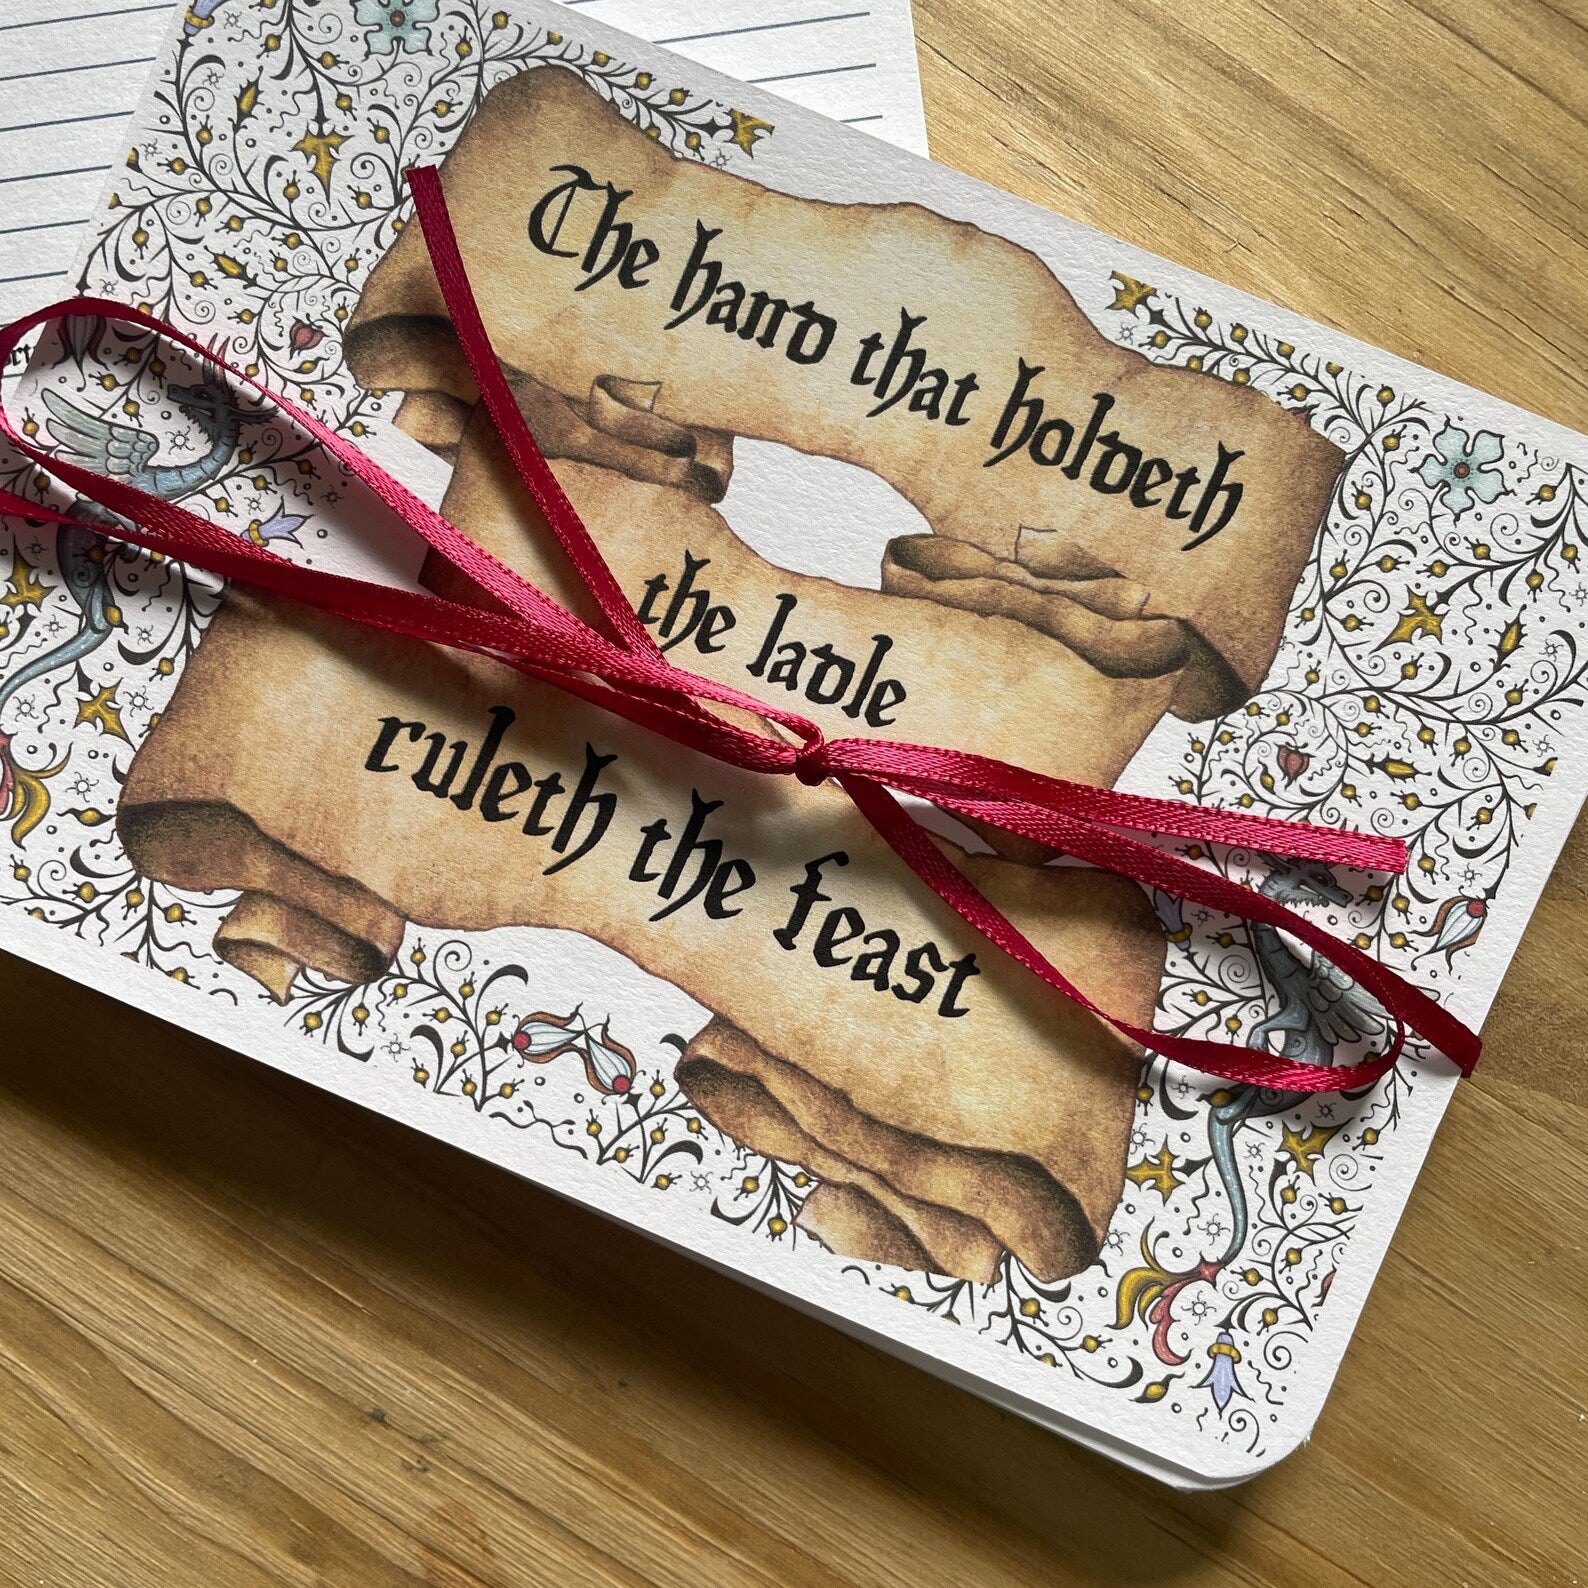 The hand that holdeth
the ladle
ruleth the feast